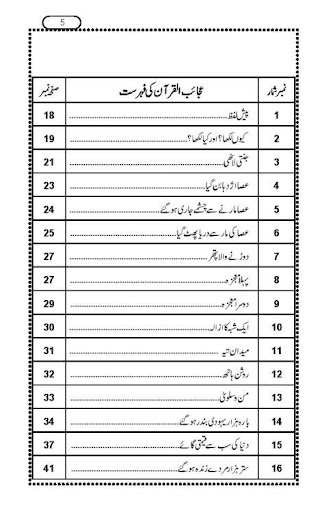 5
نمبر شمار عجائب القرآن کی فہرست صفحہ نمبر
1 پیش لفظ 18
2 کیوں لکھا؟ اور کیا لکھا؟ 19
3 جنتی لاٹھی 21
4 عصا اژدہا بن گیا 23
5 عصا مارنے سے چشمے جاری ہوگئے 24
6 عصا کی مار سے دریا پھٹ گیا 25
7 دوڑنے والا پتھر 27
8 پہلا معجزہ 27
9 دوسرا معجزہ 29
10 ایک شبہ کا ازالہ 30
11 میدان تیہ 31
12 روشن ہاتھ 32
13 من و سلویٰ 33
14 بارہ ہزار یہودی بندر ہوگئے 34
15 دنیا کی سب سے قیمتی گائے 37
16 ستر ہزار مردے زندہ ہوگئے 41